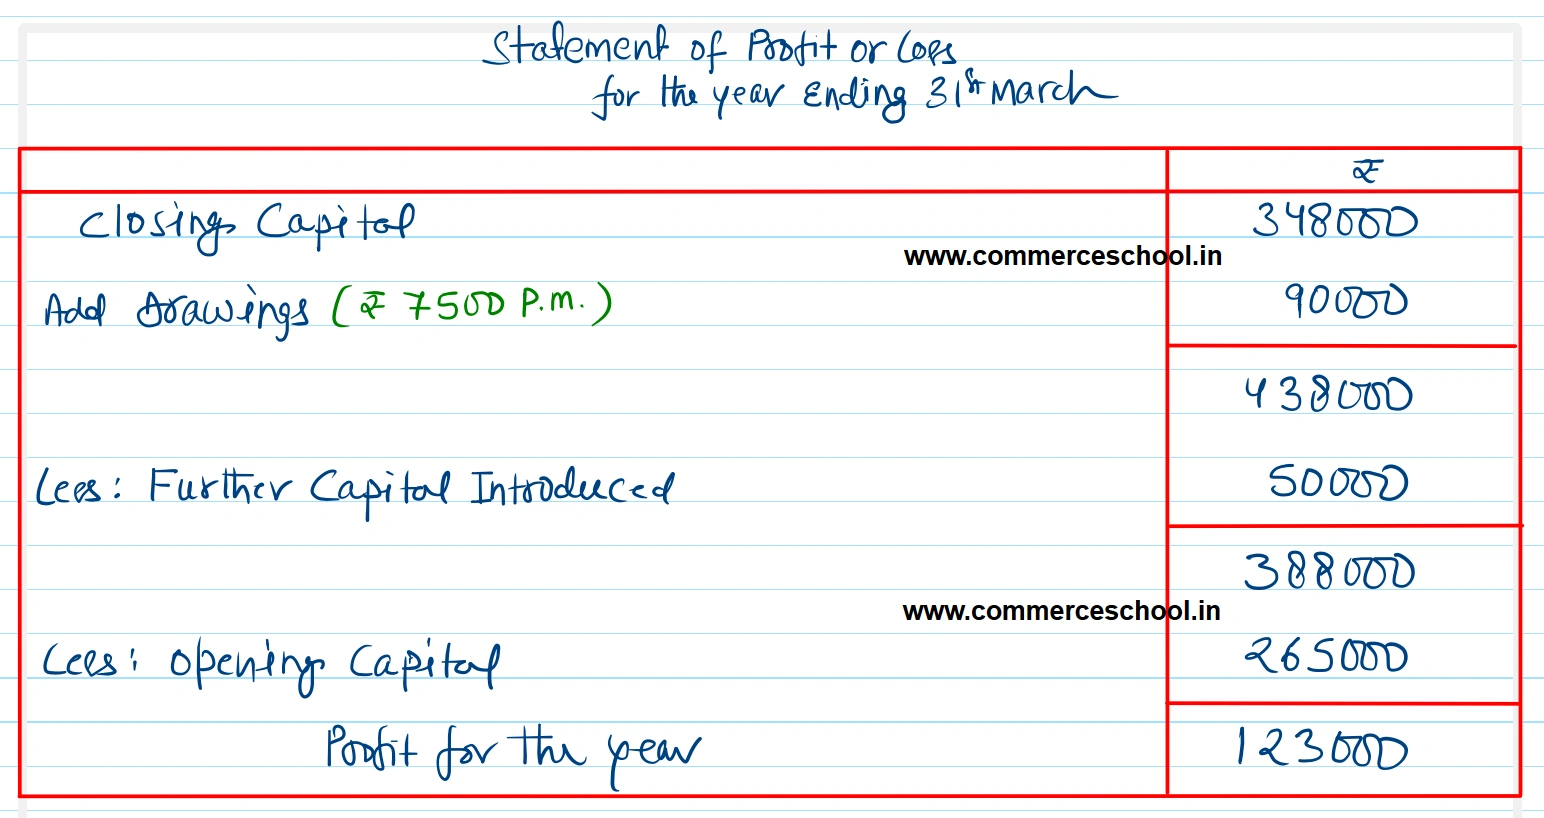 Statement of Profit or Loss
for the year Ending 31st March
₹
Closing Capital 348000
www.commerceschool.in
Add Drawings (₹ 7500 P.m.) 90000
438000
Less: Further Capital Introduced 50000
388000
www.commerceschool.in
Less: Opening Capital 265000
Profit for the year 123000